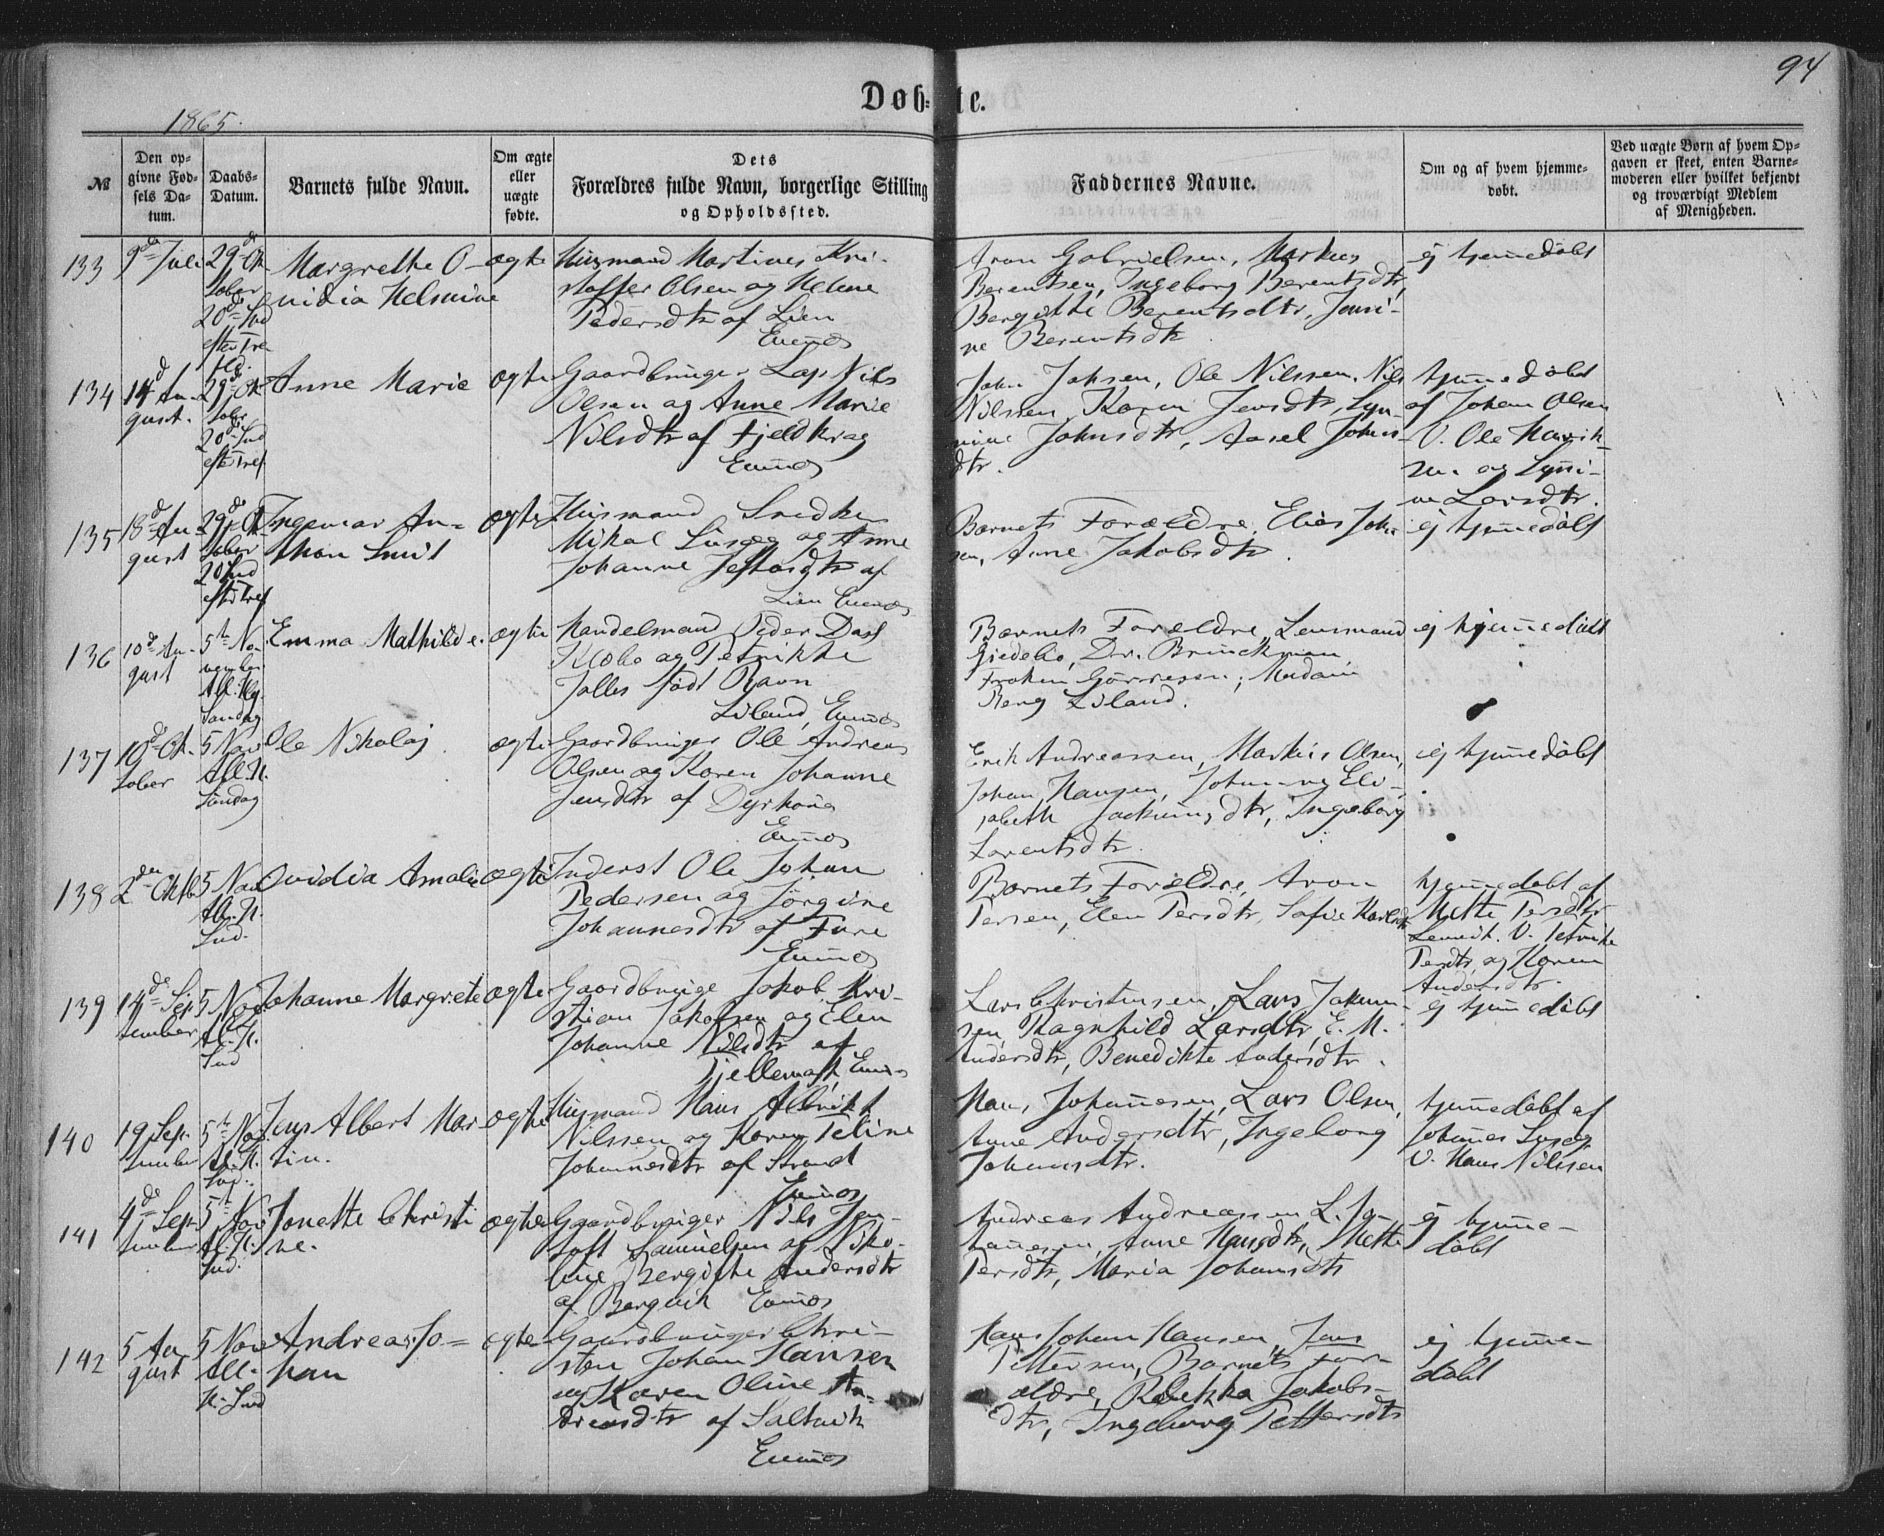 94
Døb-te.
1865.
№
Den opgivne Fødsels Datum.
Daabs-Datum.
Barnets fulde Navn.
Om ægte eller uægte fødte.
Dets Forældres fulde Navn, borgerlige Stilling og Opholdssted.
Faddernes Navne.
Om og af hvem hjemmedøbt.
Ved uægte Børn af hvem Opgaven er skeet, enten Barnemoderen eller hvilket bekjendt og troværdigt Medlem af Menigheden.
133
9de Juli
29de Oktober
20de Snd
efter Tre
fld.
Margrethe O-
vidia Helmine
ægte
Husmand Martines Kri-
stoffer Olsen og Helene
Pedersdtr af Lien
Evenes
Aron Gabrielsen, Markus
Berentsen, Ingeborg Berentsdtr,
Bergitte Berentsdtr, Joni-
ne Berentsdtr
ej hjemedøbt
134
14d Au-
gust.
29d Ok
tober
20de Snd
efter Tref
Anne Marie
ægte
Gaardbruger Lap Nils
Olsen og Anne Marie
Nilsdtr af Fjeldkrag
Evenes
John Johsen, Ole Nilssen, Nils
Nilssen, Karen Jensdtr,
Johnsdtr, Aasel Johns-
dtr.
hjemedøbt
af Johan Olsen
V. Ole Henrik-
sen og
Larsdtr.
135
18d Au-
gust
29de Ok-
tober
20 Snd
efter Tref
Ingemar An-
thon Smit
ægte
Husmand Snedker
Mikal Liisæg og Anne
Johanne Jeftasdtr af
Lien Evenes
Barnets Forældre, Elias John
sen, Anne Jakobsdtr.
ej hjemedøbt
136
10de Au-
gust
5te No-
vember
All. Hg.
Søndag
Emma Mathilde.
ægte
Handelsmand Peder Dass
Klæbo og Petrikke
Jalles født Ravn
Liland, Evenes
Barnets Forældre, Lensmand
Giedebo, Dr. Brinckman,
Frøken Gørrissen, Madam
Berg Liland.
ej hjemmedøbt
137
19d Ok-
tober
5 Nov
All. H.
Søndag
Ole Nikolaj
ægte
Gaardbruger Ole Andreas
Olsen og Karen Johanne
Jensdtr af Dyrhaug
Evenes
Erik Andreassen, Markus Olsen,
Johan Hansen, Johanna Eli-
sabeth Joakimsdtr, Ingeborg
Lorentsdtr.
ej hjemedøbt
138
2den Oktb
5 Nov
Al. H.
Snd.
Ovidia Amalie
ægte
Inderst Ole Johan
Pedersen og Jørgine
Johannesdtr af Fure
Evenes
Barnets Forældre, Aron
Persen, Elen Persdtr, Sofie Karlsdtr
hjemedøbt af
Mette Persdtr
V. Petrike
Persdtr og Karen
Andersdtr.
139
14de Sep
tember
5 Nov
Al. H.
Snd
Johanne Margrete
ægte
Gaardbruge Jakob Kri-
stian Jakobsen og Elen
Johanne Nilsdtr af
Tjellemark, Evenes
Lars Christensen, Lars Johann-
sen, Ragnhild Larsdtr, E. M.
Andersdtr, Benedikte Andersdtr.
ej hjemedøbt
140
19 Sep-
tember
5te Nov
Al. H.
Søg.
Jens Albert Mar
tin.
ægte
Husmand Hans Albrikt
Nilssen og Karen Peline
Johannesdtr af Strand
Evenes
Hans Johannesen, Lars Olsen,
Anne Andersdtr, Ingeborg
Johansdtr.
hjemedøbt af
Johannes Liisæg
V. Hans Nilssen
141
4de Sep-
tember
5te Nov
Al. H.
Snd.
Jonette Christi
ne.
ægte
Gaardbruger Nils Jen-
toft Samuelsen og Niko-
line Bergitte Andersdtr
af Bergvik Evenes
Andreas Andreassen L. Jo-
hannesen, Anne Hansdtr, Mette
Persdtr, Maria Johansdtr
ej hjemme-
døbt
142
5 Au-
gust
5 Nov
All.
H. Snd
Andreas Jo-
han
ægte
Gaardbruger Chri-
sten Johan Hansen
og Karen Oline An-
dreasdtr af Saltvik
Evenes
Hans Johan Hansen, Jens
Pettersen, Barnets For-
ældre, Rebekka Jakobs-
dtr, Ingeborg Pettersdtr
ej hjemme-
døbt